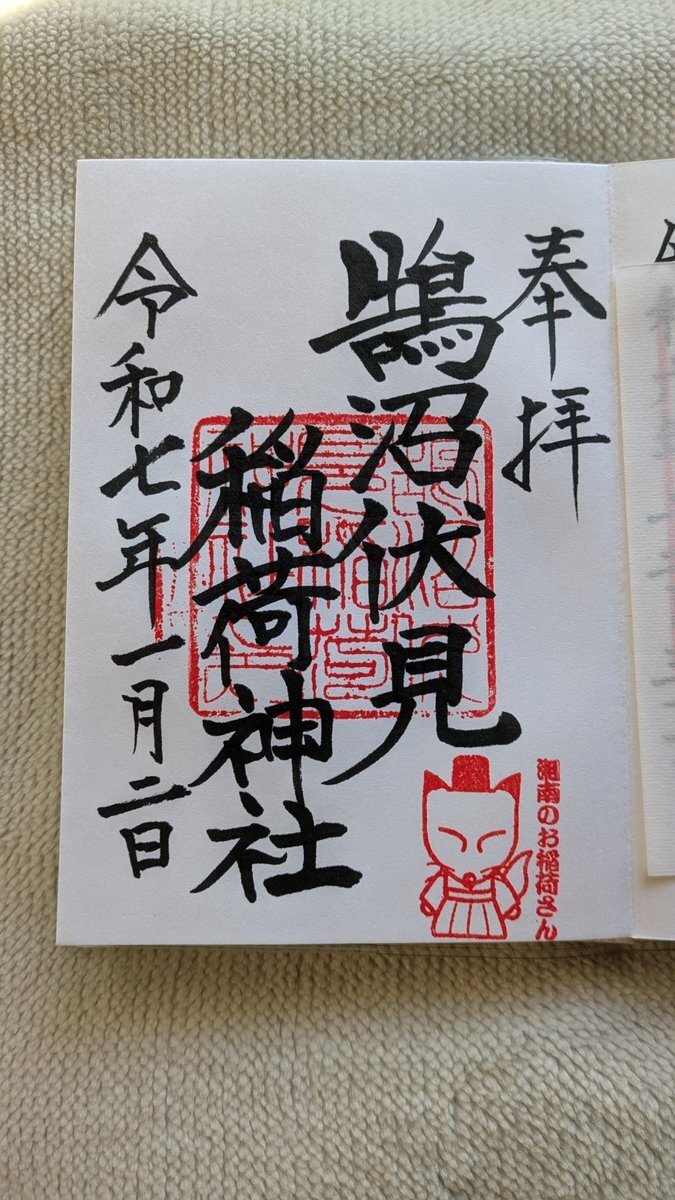 奉拝
鵠沼伏見
稲荷神社
令和七年一月二日
湘南のお稲荷さん